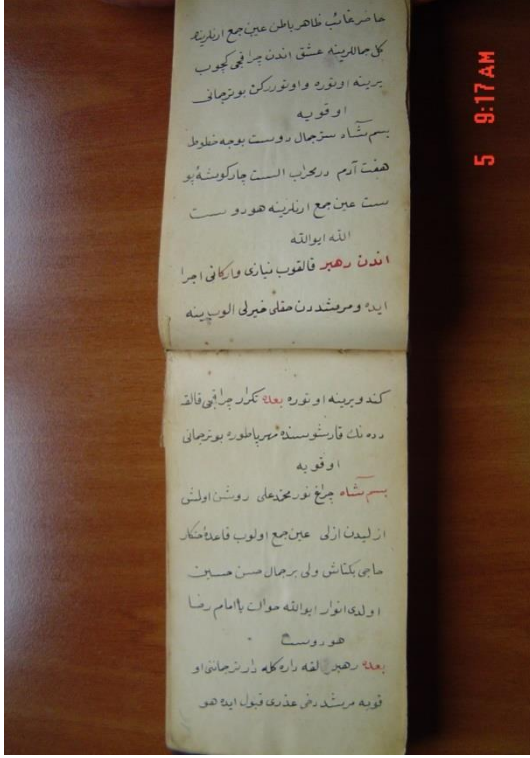 حاضر غائب ظاهر باطن عين جمع ارنلرينه
كل جماللرينه عشق اندن چراغچى كچوب
يرينه اوتوره و اوتورركن بو ترجمانى
اوقويه
بسم شاه ستر جمال دوست بوجه خطوط
هفت آدم در محراب الست چاركوشهٔ پو
ست عين جمع ارنلرينه هو دوست
الله ايوالله
اندن رهبر قالقوب نيازى و اركانى اجرا
ايده و مرشددن حقلى خيرلى الوب ينه
كندو يرينه اوتوره بعده تكرار چراغچى قالقه
دده نك قارشوسنده مهر پا طوره بو ترجمانى
اوقويه
بسم شاه چراغ نور محمد على روشن اولمش
ازليدن ازلى عين جمع اولوب قاعدهٔ خنكار
حاجى بكتاش ولى بر جمال حسن حسين
اولدى انوار ايوالله حوالت يا امام رضا
هو دوست
بعده رهبر لقه داره كله دار ترجماننى او
قويه مرشد دخى عذرى قبول ايده هو
5 9:17 AM